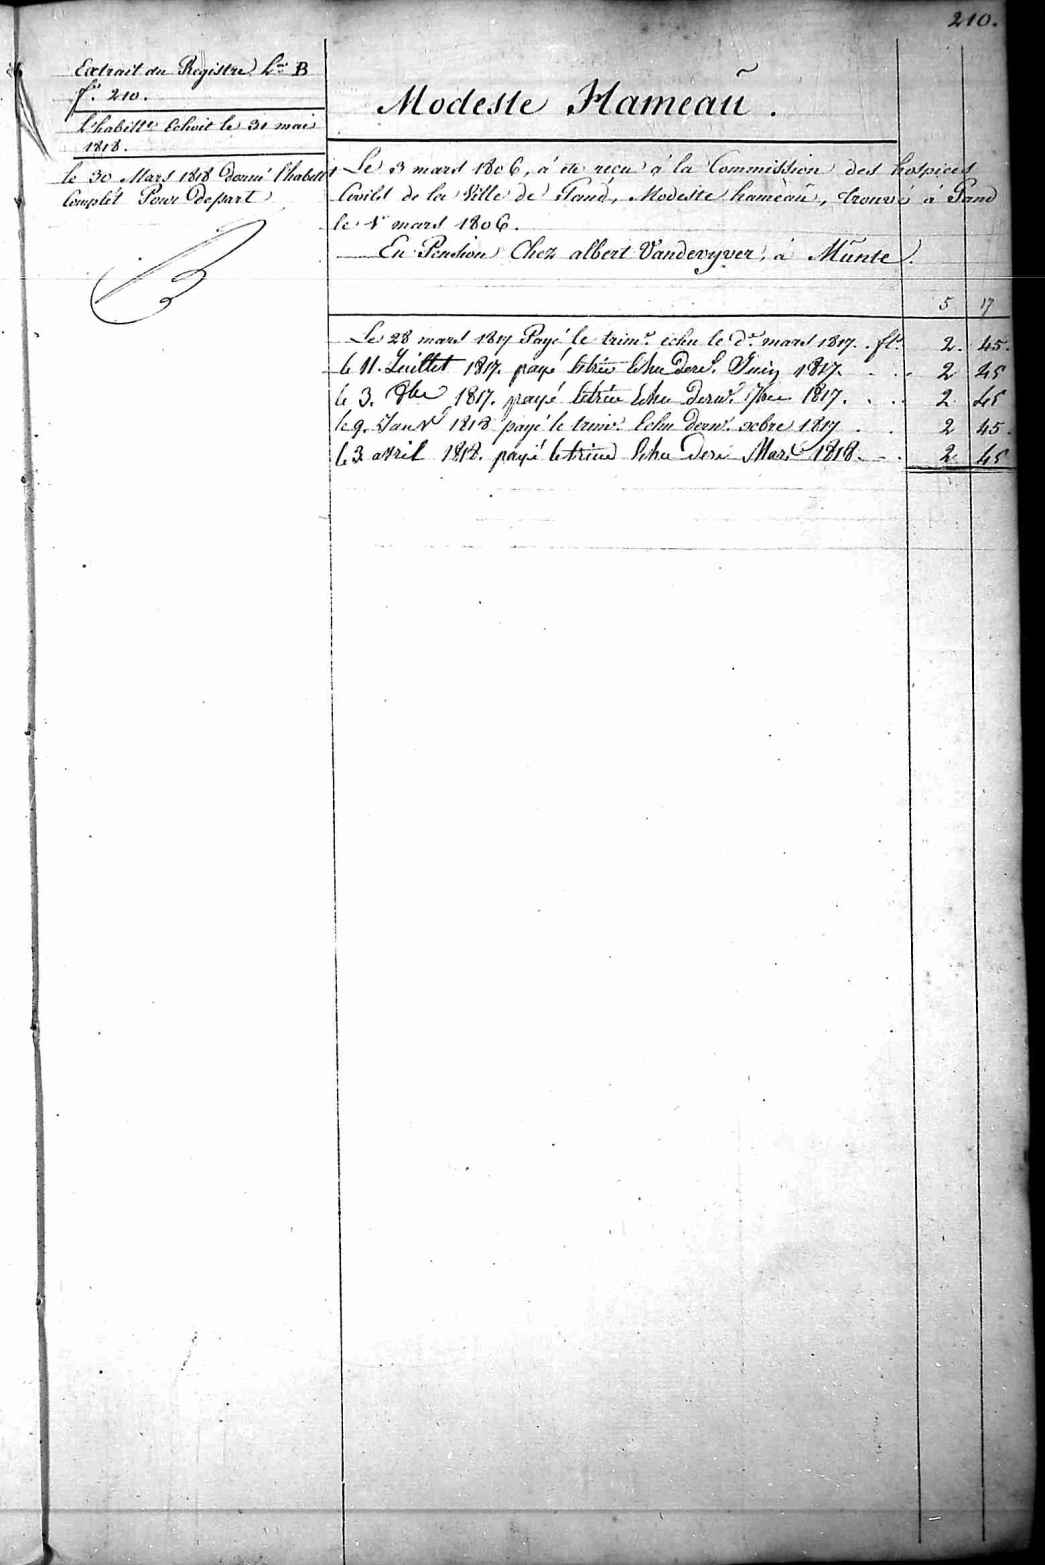 210.
Extrait du Registre Lre B
f° 210.
L'habillt echoit le 31 mai
1818.
le 30 Mars 1818 donné l'habillt
Complét Pour depart
Modeste Hameaŭ.
Le 3 mars 1806, à été reçu à la Commission des hospices
Civils de la Ville de Gand, Modeste hameaŭ, trouvé à Gand
le 1r mars 1806.
En Pension Chez albert Vandevyver, à Mŭnte.
5 17
Le 28 mars 1817 Payé le trimre echu le dr mars 1817. fls 2. 45.
le 11. Juillet 1817. payé letrim Echu Derr Juin 1817 2 45
le 3. 8bre 1817. payé letrim Echu Dernr 7bre 1817. 2 45
le 9. Janvr 1818 payé le trimr Echu dernr xcbre 1817 2 45.
le 3 avril 1818. payé letrim Echu Derr Mars 1818. 2 45